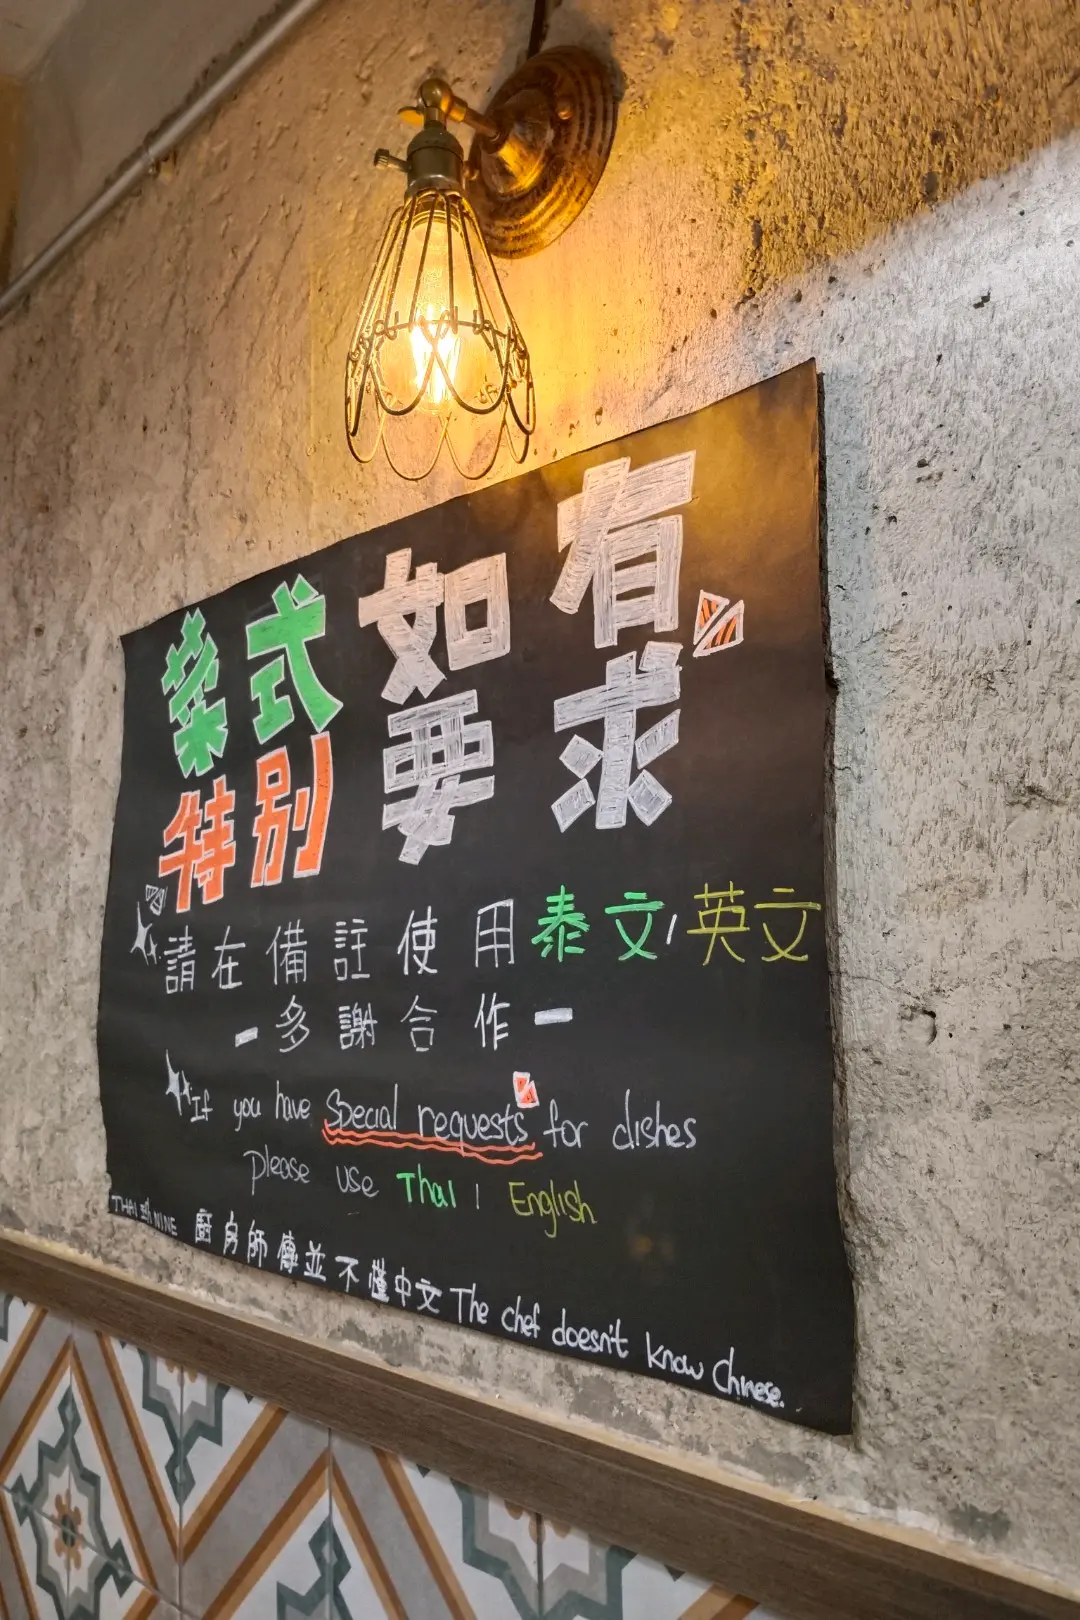 菜式如有
特別要求
請在備註使用泰文/英文
-多謝合作-
If you have Special requests for dishes
please use Thai / English
THAI NINE 廚房師傅並不懂中文 The chef doesn't know Chinese.